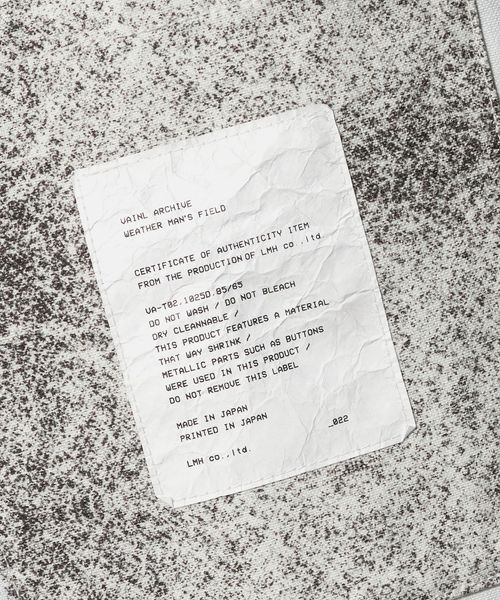 VAINL ARCHIVE
WEATHER MAN'S FIELD
CERTIFICATE OF AUTHENTICITY ITEM
FROM THE PRODUCTION OF LMH co.,ltd.
VA-T02.1025D.05/65
DO NOT WASH / DO NOT BLEACH
DRY CLEANNABLE /
THIS PRODUCT FEATURES A MATERIAL
THAT WAY SHRINK /
METALLIC PARTS SUCH AS BUTTONS
WERE USED IN THIS PRODUCT /
DO NOT REMOVE THIS LABEL
MADE IN JAPAN
PRINTED IN JAPAN
_022
LMH co.,ltd.